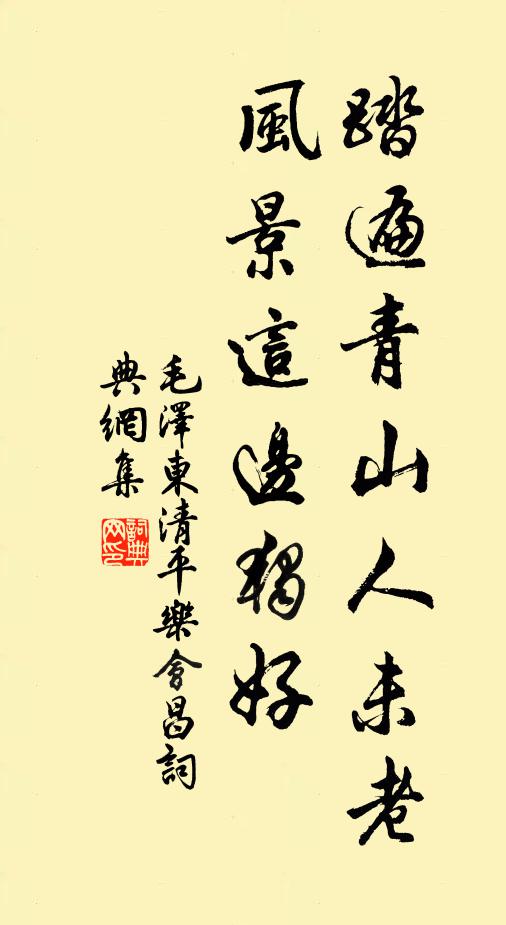 踏遍青山人未老
風景這邊獨好
毛澤東清平樂會昌詞
典網集
詞典
网印